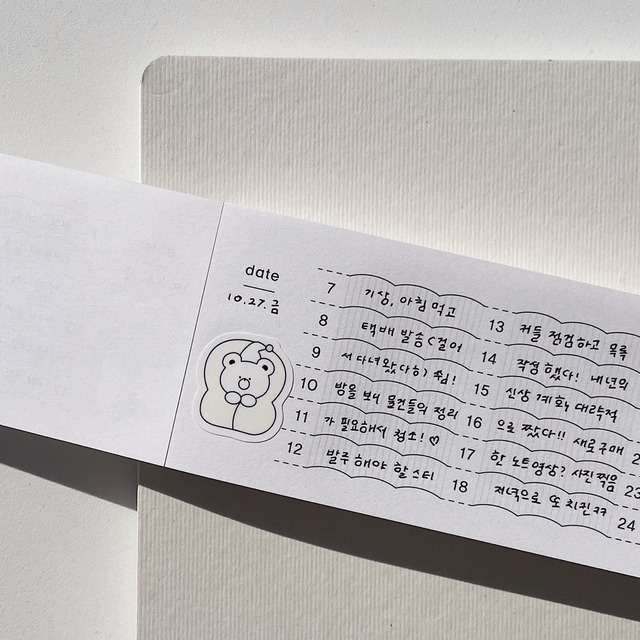 date
10.27.금
7 기상, 아침 먹고
8 택배 발송 (걸어
9 서 다녀왔다히) 쉼!
10 방을 보니 물건들의 정리
11 가 필요해서 청소! ♡
12 발주 해야 할 스티
13 커들 점검하고 목록
14 작성 했다! 내년의
15 신상 계획, 대략적
16 으로 짰다!! 새로구매
17 한 노트영상? 사진찍음
18 저녁으로 또 치킨ㅋㅋ
23
24